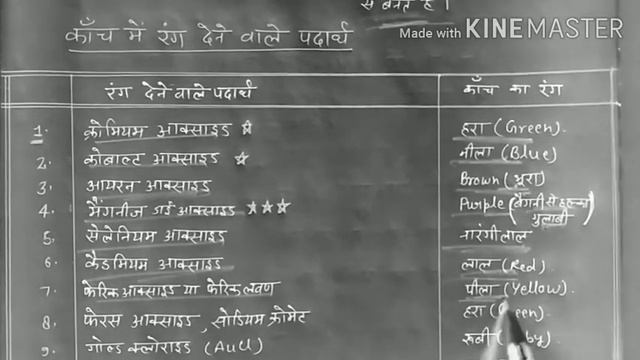 से बनते हैं।
Made with KINEMASTER
काँच में रंग देने वाले पदार्थ
रंग देने वाले पदार्थ काँच का रंग
1. क्रोमियम आक्साइड ☆ हरा (Green).
2. कोबाल्ट आक्साइड ☆ नीला (Blue)
3. आयरन आक्साइड Brown (भूरा)
4. मैंगनीज डाई आक्साइड ☆☆☆ Purple (बैंगनी से हल्का गुलाबी)
5. सेलेनियम आक्साइड नारंगी लाल
6. कैडमियम आक्साइड लाल (Red).
7. फेरिक आक्साइड या फेरिक लवण पीला (Yellow).
8. फेरस आक्साइड, सोडियम क्रोमेट हरा
9. गोल्ड क्लोराइड रूबी